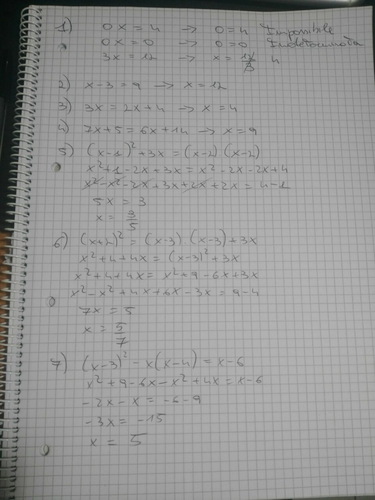 1) 0x = 4 → 0 = 4 Impossibile
0x = 0 → 0 = 0 Indeterminata
3x = 12 → x = 12/3 4
2) x - 3 = 9 → x = 12
3) 3x = 2x + 4 → x = 4
4) 7x + 5 = 6x + 14 → x = 9
5) (x - 1)² + 3x = (x - 2) (x - 2)
x² + 1 - 2x + 3x = x² - 2x - 2x + 4
x² - x² - 2x + 3x + 2x + 2x = 4 - 1
5x = 3
x = 3/5
6) (x + 2)² = (x - 3) (x - 3) + 3x
x² + 4 + 4x = (x - 3)² + 3x
x² + 4 + 4x = x² + 9 - 6x + 3x
x² - x² + 4x + 6x - 3x = 9 - 4
7x = 5
x = 5/7
7) (x - 3)² - x (x - 4) = x - 6
x² + 9 - 6x - x² + 4x = x - 6
- 2x - x = - 6 - 9
- 3x = - 15
x = 5